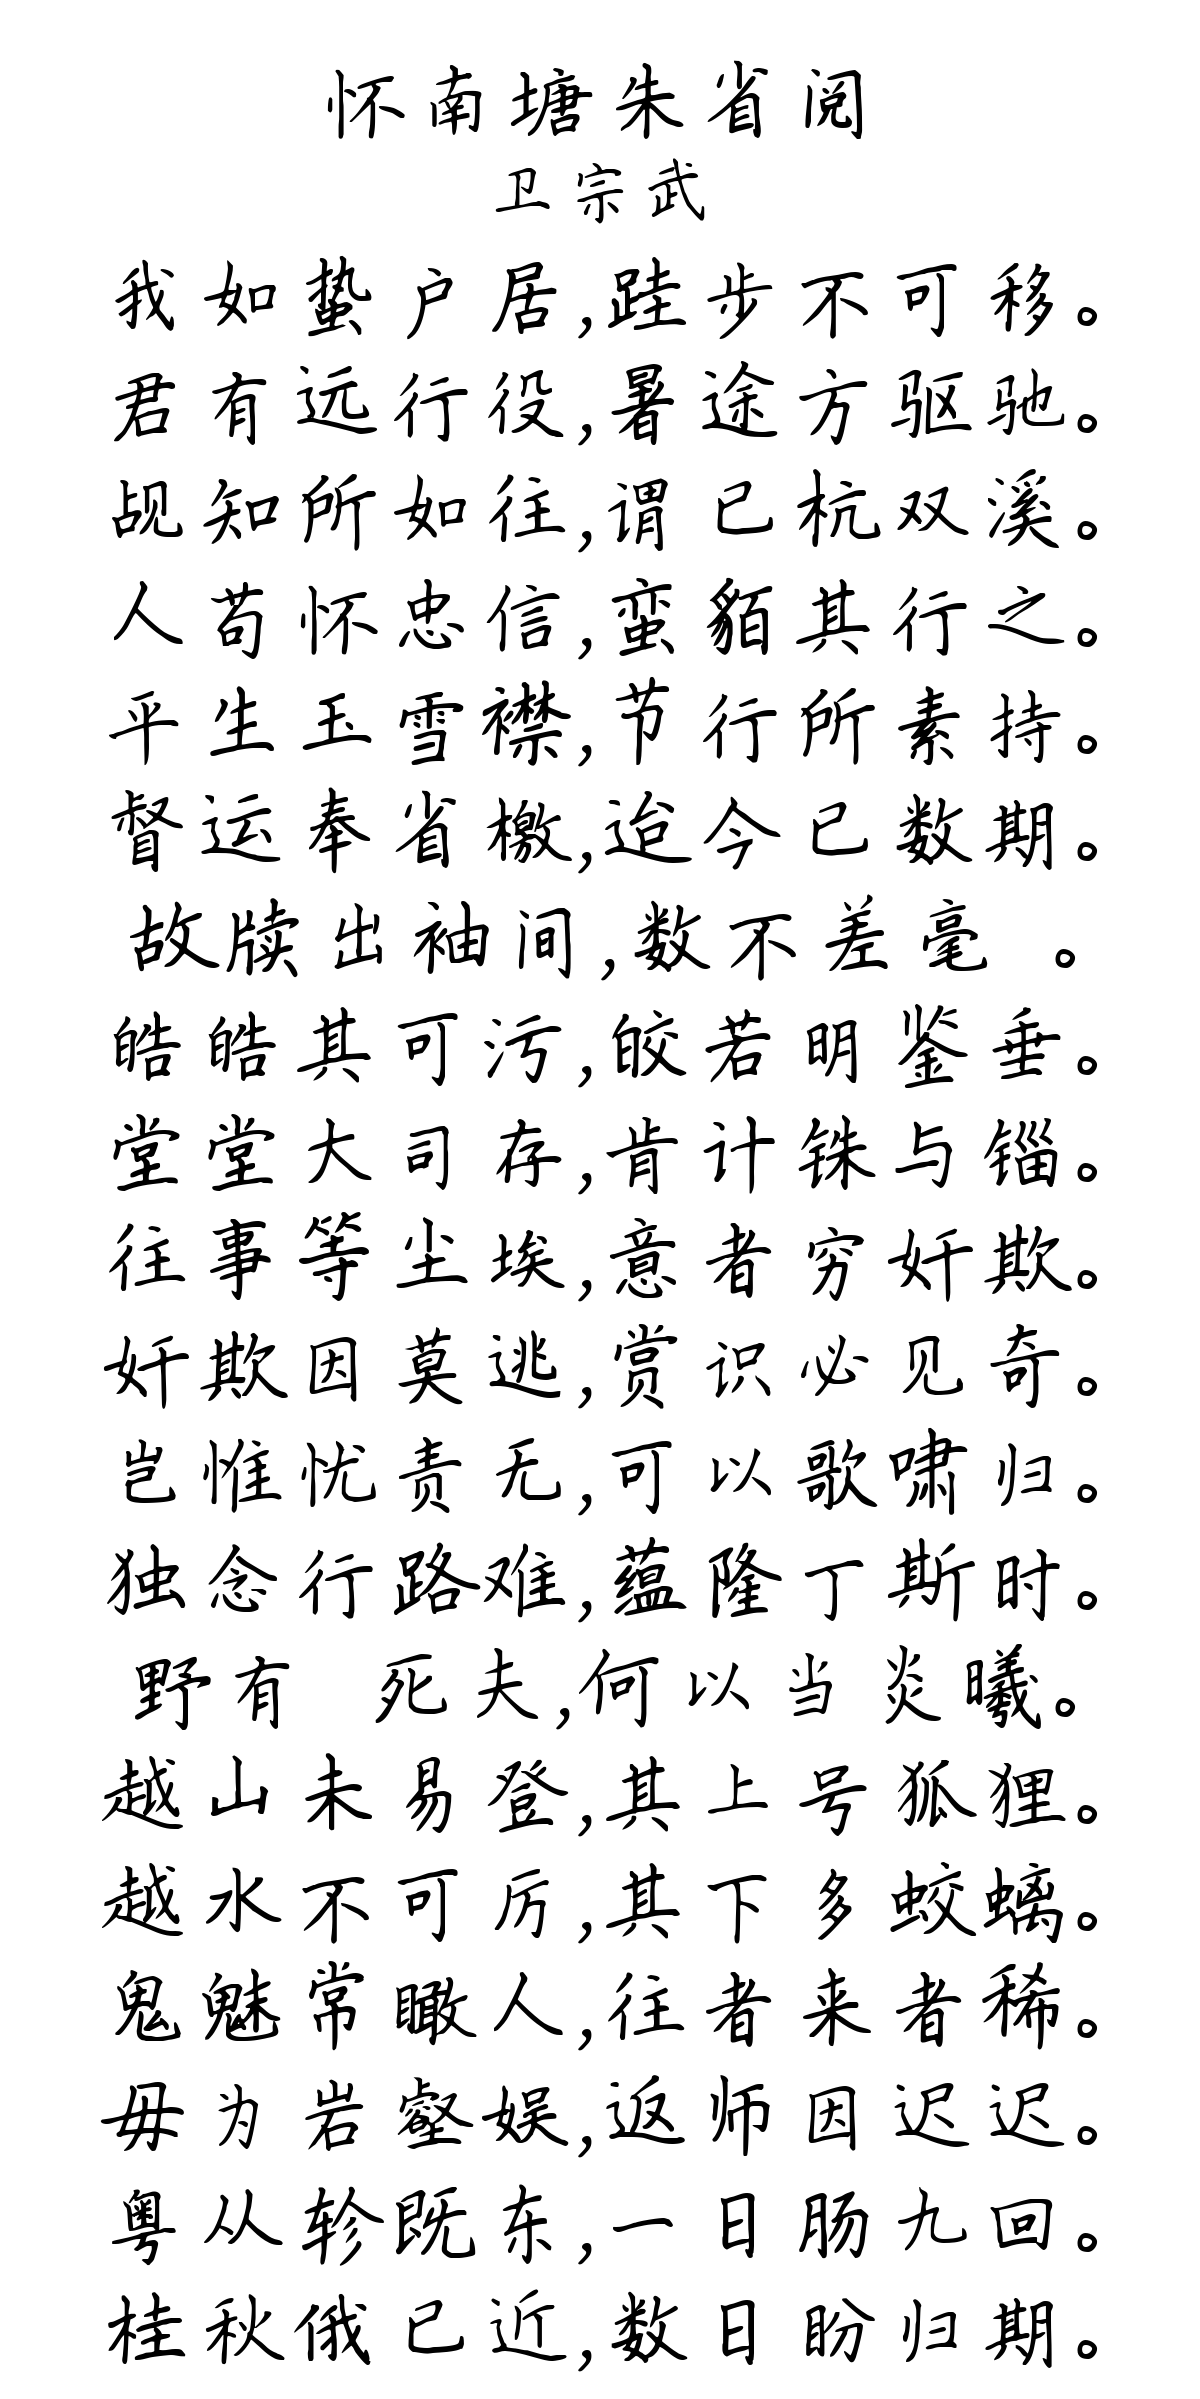 怀南塘朱省阅
卫宗武
我如蛰户居,跬步不可移。
君有远行役,暑途方驱驰。
觇知所如往,谓已杭双溪。
人苟怀忠信,蛮貊其行之。
平生玉雪襟,节行所素持。
督运奉省檄,迨今已数期。
故牍出袖间,数不差毫 。
皓皓其可污,皎若明鉴垂。
堂堂大司存,肯计铢与锱。
往事等尘埃,意者穷奸欺。
奸欺因莫逃,赏识必见奇。
岂惟忧责无,可以歌啸归。
独念行路难,蕴隆丁斯时。
野有 死夫,何以当炎曦。
越山未易登,其上号狐狸。
越水不可厉,其下多蛟螭。
鬼魅常瞰人,往者来者稀。
毋为岩壑娱,返师因迟迟。
粤从轸既东,一日肠九回。
桂秋俄已近,数日盼归期。